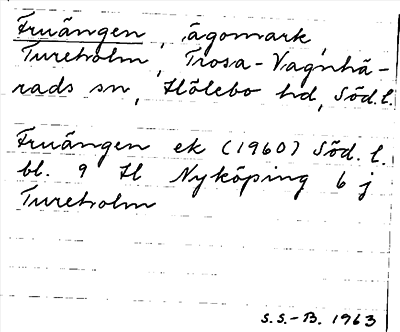 Fruängen, ägomark,
Tureholm, Trosa-Vagnhä-
rads sn, Hölebo hd, Söd.l.
Fruängen ek (1960) Söd.l.
bl. 9 H Nyköping 6 j
Tureholm
S.S.-B. 1963